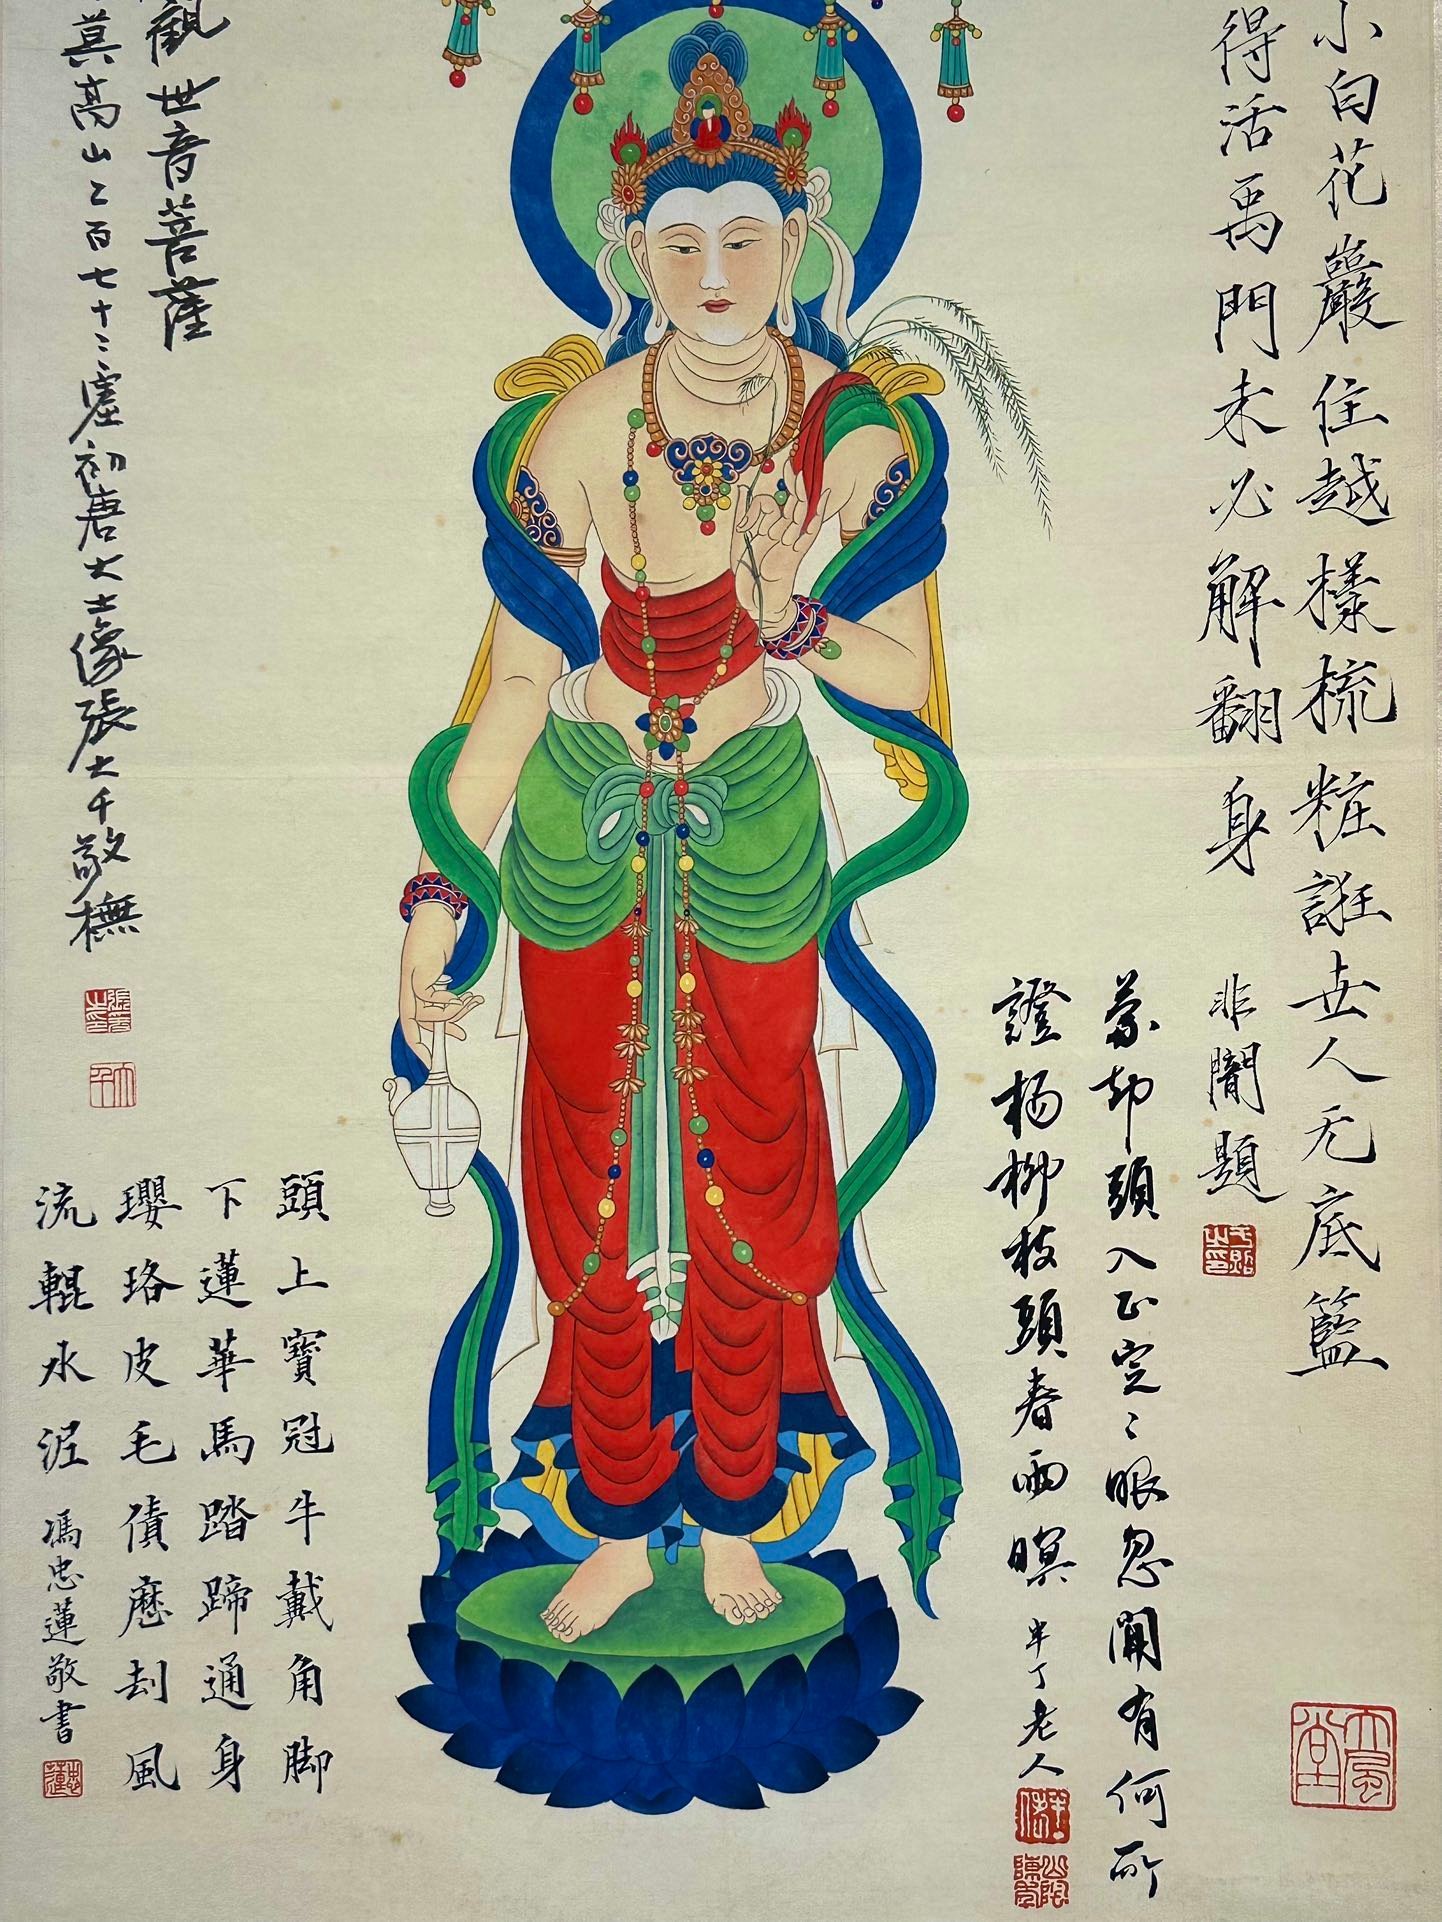 小白花巖住越樣梳粧誑世人无底籃
得活禹門未必解翻身
非闇題
蒙却頭入正定〻眼忽開有何所
證楊柳枝頭春雨暝
半丁老人
觀世音菩薩
莫高山二百七十二窟初唐大士像張大千敬橅
頭上寶冠牛戴角脚
下蓮華馬踏蹄通身
瓔珞皮毛債歷刦風
流輥水泥
馮忠蓮敬書
大風堂